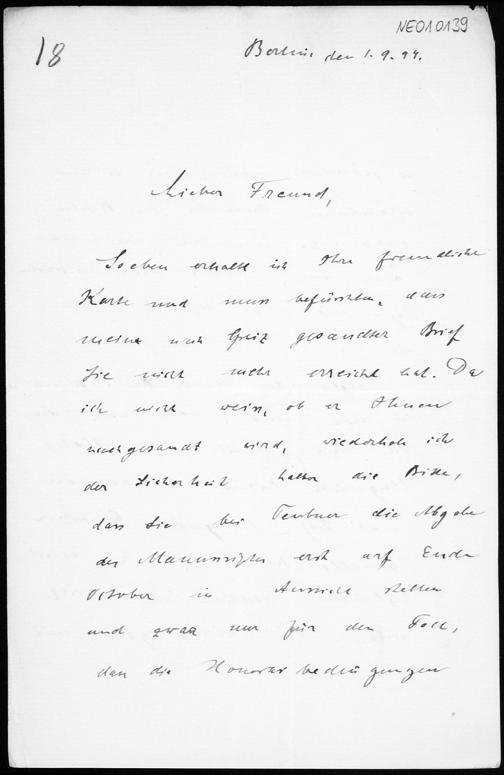 NE010139
18
Berlin den 1. 9. 94.
Lieber Freund,
Soeben erhalte ich Ihre freundliche
Karte und muss befürchten, dass
meine nach Greiz gesandter Brief
Sie nicht mehr erreicht hat. Da
ich nicht weiss, ob er Ihnen
nachgesandt wird, wiederhole ich
der Sicherheit halber die Bitte,
dass Sie bei Teubner die Abgabe
des Manuscriptes erst auf Ende
October in Aussicht stellen
und zwar nur für den Fall,
dass die Honorarbedingungen